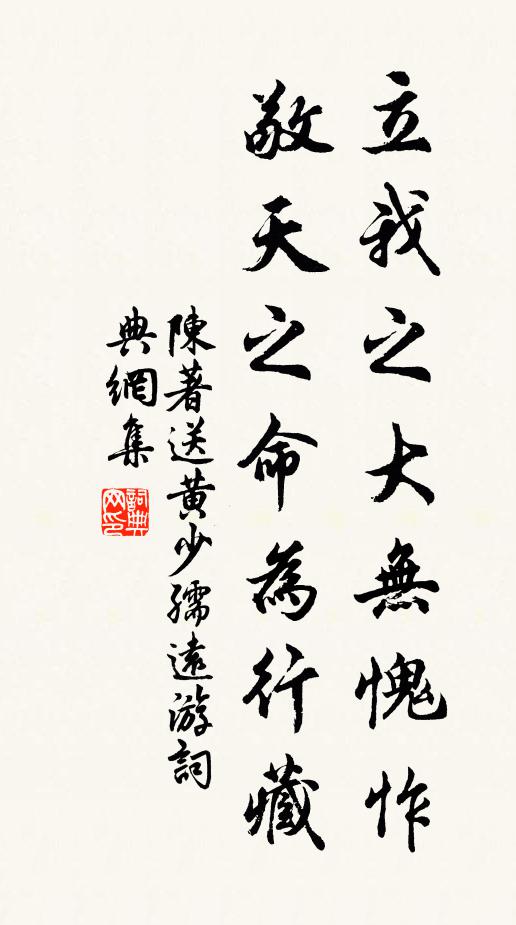 立我之大無愧怍
敬天之命為行藏
陳著送黃少孺遠游詞
典網集
詞典網印